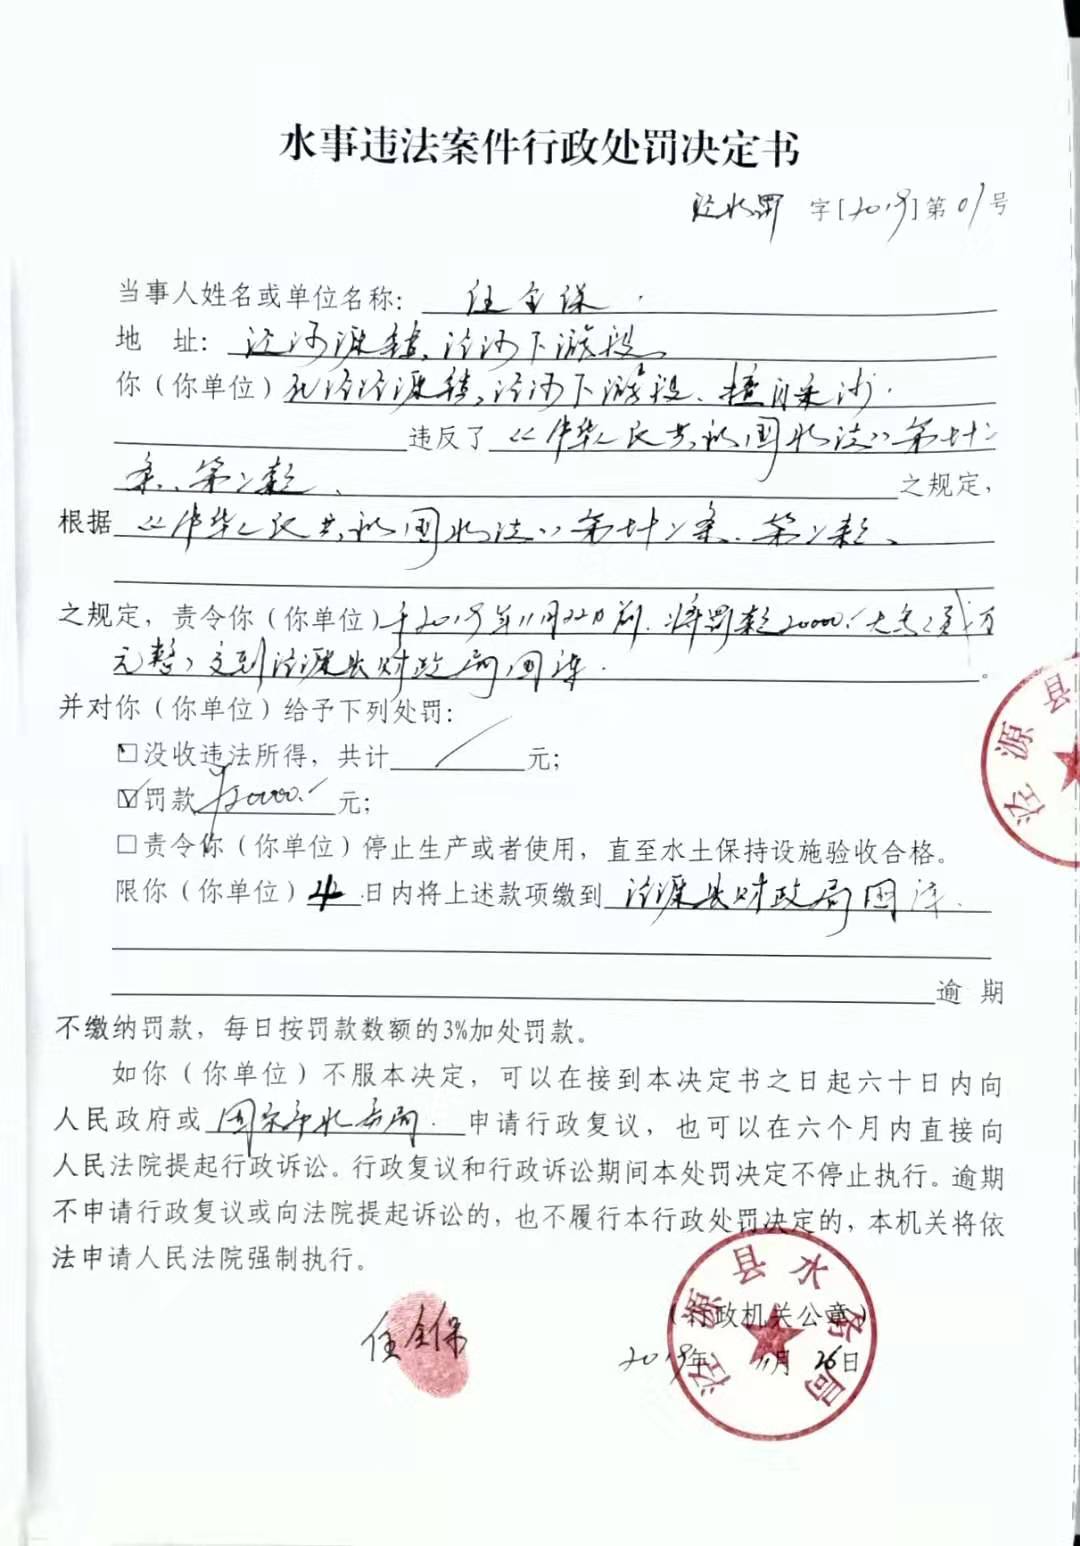 水事违法案件行政处罚决定书
泾水罚 字[2019]第01号
当事人姓名或单位名称：任全保
地 址：泾河源镇、泾河下游段。
你（你单位）在泾河源镇、泾河下游段、擅自采沙.
违反了《中华人民共和国水法》第七十二
条、第二款、之规定，
根据《中华人民共和国水法》第七十二条、第二款、
之规定，责令你（你单位）于2019年11月22日前.将罚款20000.大写:贰万
元整）交到泾源县财政局国库.。
并对你（你单位）给予下列处罚：
□没收违法所得，共计 / 元；
☑罚款¥20000.元；
□责令你（你单位）停止生产或者使用，直至水土保持设施验收合格。
限你（你单位）日内将上述款项缴到泾源县财政局国库.
逾 期
不缴纳罚款，每日按罚款数额的3%加处罚款。
如你（你单位）不服本决定，可以在接到本决定书之日起六十日内向
人民政府或 申请行政复议，也可以在六个月内直接向
人民法院提起行政诉讼。行政复议和行政诉讼期间本处罚决定不停止执行。逾期
不申请行政复议或向法院提起诉讼的，也不履行本行政处罚决定的，本机关将依
法申请人民法院强制执行。
任全保
（行政机关公章）
2019年11月26日
泾源县水务局
泾源县